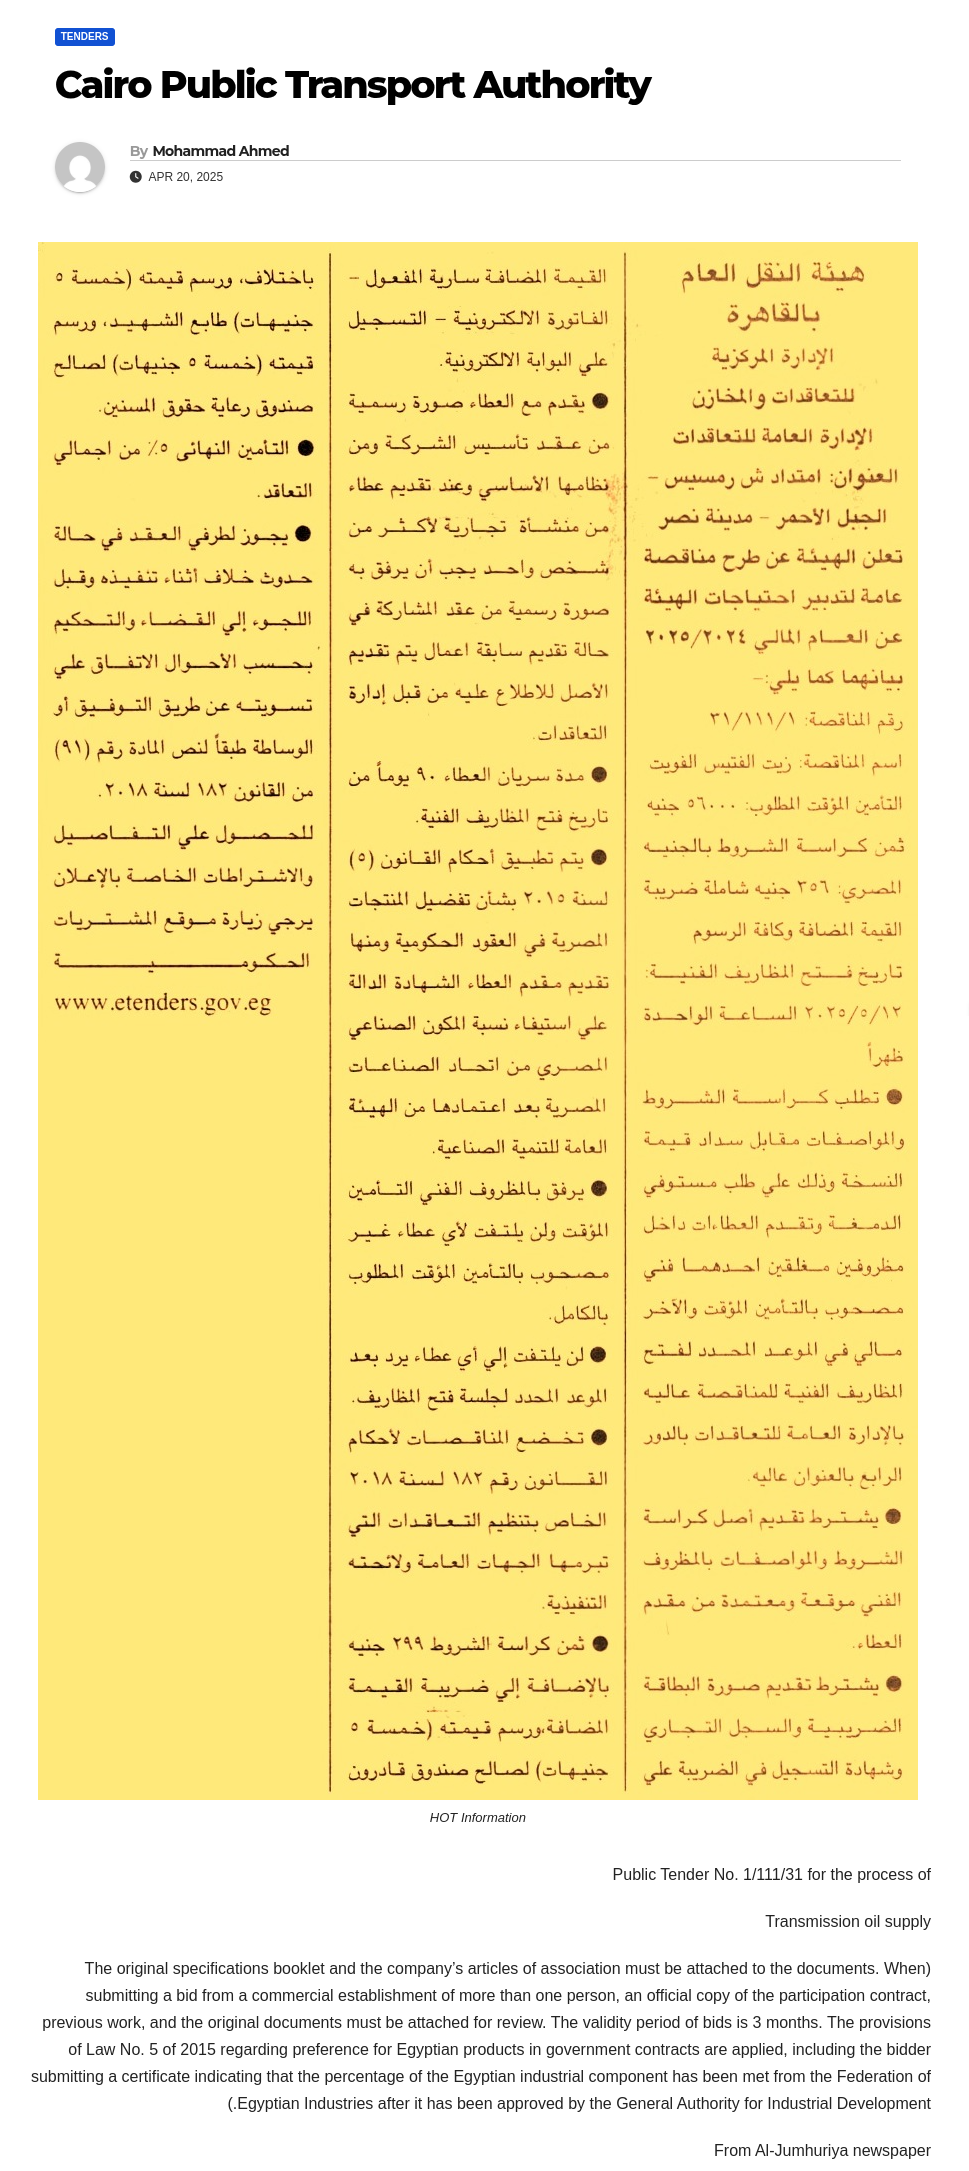 TENDERS
Cairo Public Transport Authority
By Mohammad Ahmed
APR 20, 2025
هيئة النقل العام
بالقاهرة
الإدارة المركزية
للتعاقدات والمخازن
الإدارة العامة للتعاقدات
العنوان: امتداد ش رمسيس –
الجبل الأحمر – مدينة نصر
تعلن الهيئة عن طرح مناقصة
عامة لتدبير احتياجات الهيئة
عن العام المالي ٢٠٢٥/٢٠٢٤
بيانهما كما يلي:-
رقم المناقصة: ٣١/١١١/١
اسم المناقصة: زيت الفتيس الفويت
التأمين المؤقت المطلوب: ٥٦٠٠٠ جنيه
ثمن كراسة الشروط بالجنيه
المصري: ٣٥٦ جنيه شاملة ضريبة
القيمة المضافة وكافة الرسوم
تاريخ فتح المظاريف الفنية:
٢٠٢٥/٥/١٢ الساعة الواحدة
ظهراً
● تطلب كراسة الشروط
والمواصفات مقابل سداد قيمة
النسخة وذلك علي طلب مستوفي
الدمغة وتقدم العطاءات داخل
مظروفين مغلقين احدهما فني
مصحوب بالتأمين المؤقت والآخر
مالي في الموعد المحدد لفتح
المظاريف الفنية للمناقصة عاليه
بالإدارة العامة للتعاقدات بالدور
الرابع بالعنوان عاليه.
● يشترط تقديم أصل كراسة
الشروط والمواصفات بالمظروف
الفني موقعة ومعتمدة من مقدم
العطاء.
● يشترط تقديم صورة البطاقة
الضريبية والسجل التجاري
وشهادة التسجيل في الضريبة علي
القيمة المضافة سارية المفعول –
الفاتورة الالكترونية – التسجيل
علي البوابة الالكترونية.
● يقدم مع العطاء صورة رسمية
من عقد تأسيس الشركة ومن
نظامها الأساسي وعند تقديم عطاء
من منشأة تجارية لأكثر من
شخص واحد يجب أن يرفق به
صورة رسمية من عقد المشاركة في
حالة تقديم سابقة اعمال يتم تقديم
الأصل للاطلاع عليه من قبل إدارة
التعاقدات.
● مدة سريان العطاء ٩٠ يوماً من
تاريخ فتح المظاريف الفنية.
● يتم تطبيق أحكام القانون (٥)
لسنة ٢٠١٥ بشأن تفضيل المنتجات
المصرية في العقود الحكومية ومنها
تقديم مقدم العطاء الشهادة الدالة
علي استيفاء نسبة المكون الصناعي
المصري من اتحاد الصناعات
المصرية بعد اعتمادها من الهيئة
العامة للتنمية الصناعية.
● يرفق بالمظروف الفني التأمين
المؤقت ولن يلتفت لأي عطاء غير
مصحوب بالتأمين المؤقت المطلوب
بالكامل.
● لن يلتفت إلي أي عطاء يرد بعد
الموعد المحدد لجلسة فتح المظاريف.
● تخضع المناقصات لأحكام
القانون رقم ١٨٢ لسنة ٢٠١٨
الخاص بتنظيم التعاقدات التي
تبرمها الجهات العامة ولائحته
التنفيذية.
● ثمن كراسة الشروط ٢٩٩ جنيه
بالإضافة إلي ضريبة القيمة
المضافة،ورسم قيمته (خمسة ٥
جنيهات) لصالح صندوق قادرون
باختلاف، ورسم قيمته (خمسة ٥
جنيهات) طابع الشهيد، ورسم
قيمته (خمسة ٥ جنيهات) لصالح
صندوق رعاية حقوق المسنين.
● التأمين النهائى ٥٪ من اجمالي
التعاقد.
● يجوز لطرفي العقد في حالة
حدوث خلاف أثناء تنفيذه وقبل
اللجوء إلي القضاء والتحكيم
بحسب الأحوال الاتفاق علي
تسويته عن طريق التوفيق أو
الوساطة طبقاً لنص المادة رقم (٩١)
من القانون ١٨٢ لسنة ٢٠١٨.
للحصول علي التفاصيل
والاشتراطات الخاصة بالإعلان
يرجي زيارة موقع المشتريات
الحكومية
www.etenders.gov.eg
HOT Information
Public Tender No. 1/111/31 for the process of
Transmission oil supply
The original specifications booklet and the company’s articles of association must be attached to the documents. When)
submitting a bid from a commercial establishment of more than one person, an official copy of the participation contract,
previous work, and the original documents must be attached for review. The validity period of bids is 3 months. The provisions
of Law No. 5 of 2015 regarding preference for Egyptian products in government contracts are applied, including the bidder
submitting a certificate indicating that the percentage of the Egyptian industrial component has been met from the Federation of
(.Egyptian Industries after it has been approved by the General Authority for Industrial Development
From Al-Jumhuriya newspaper